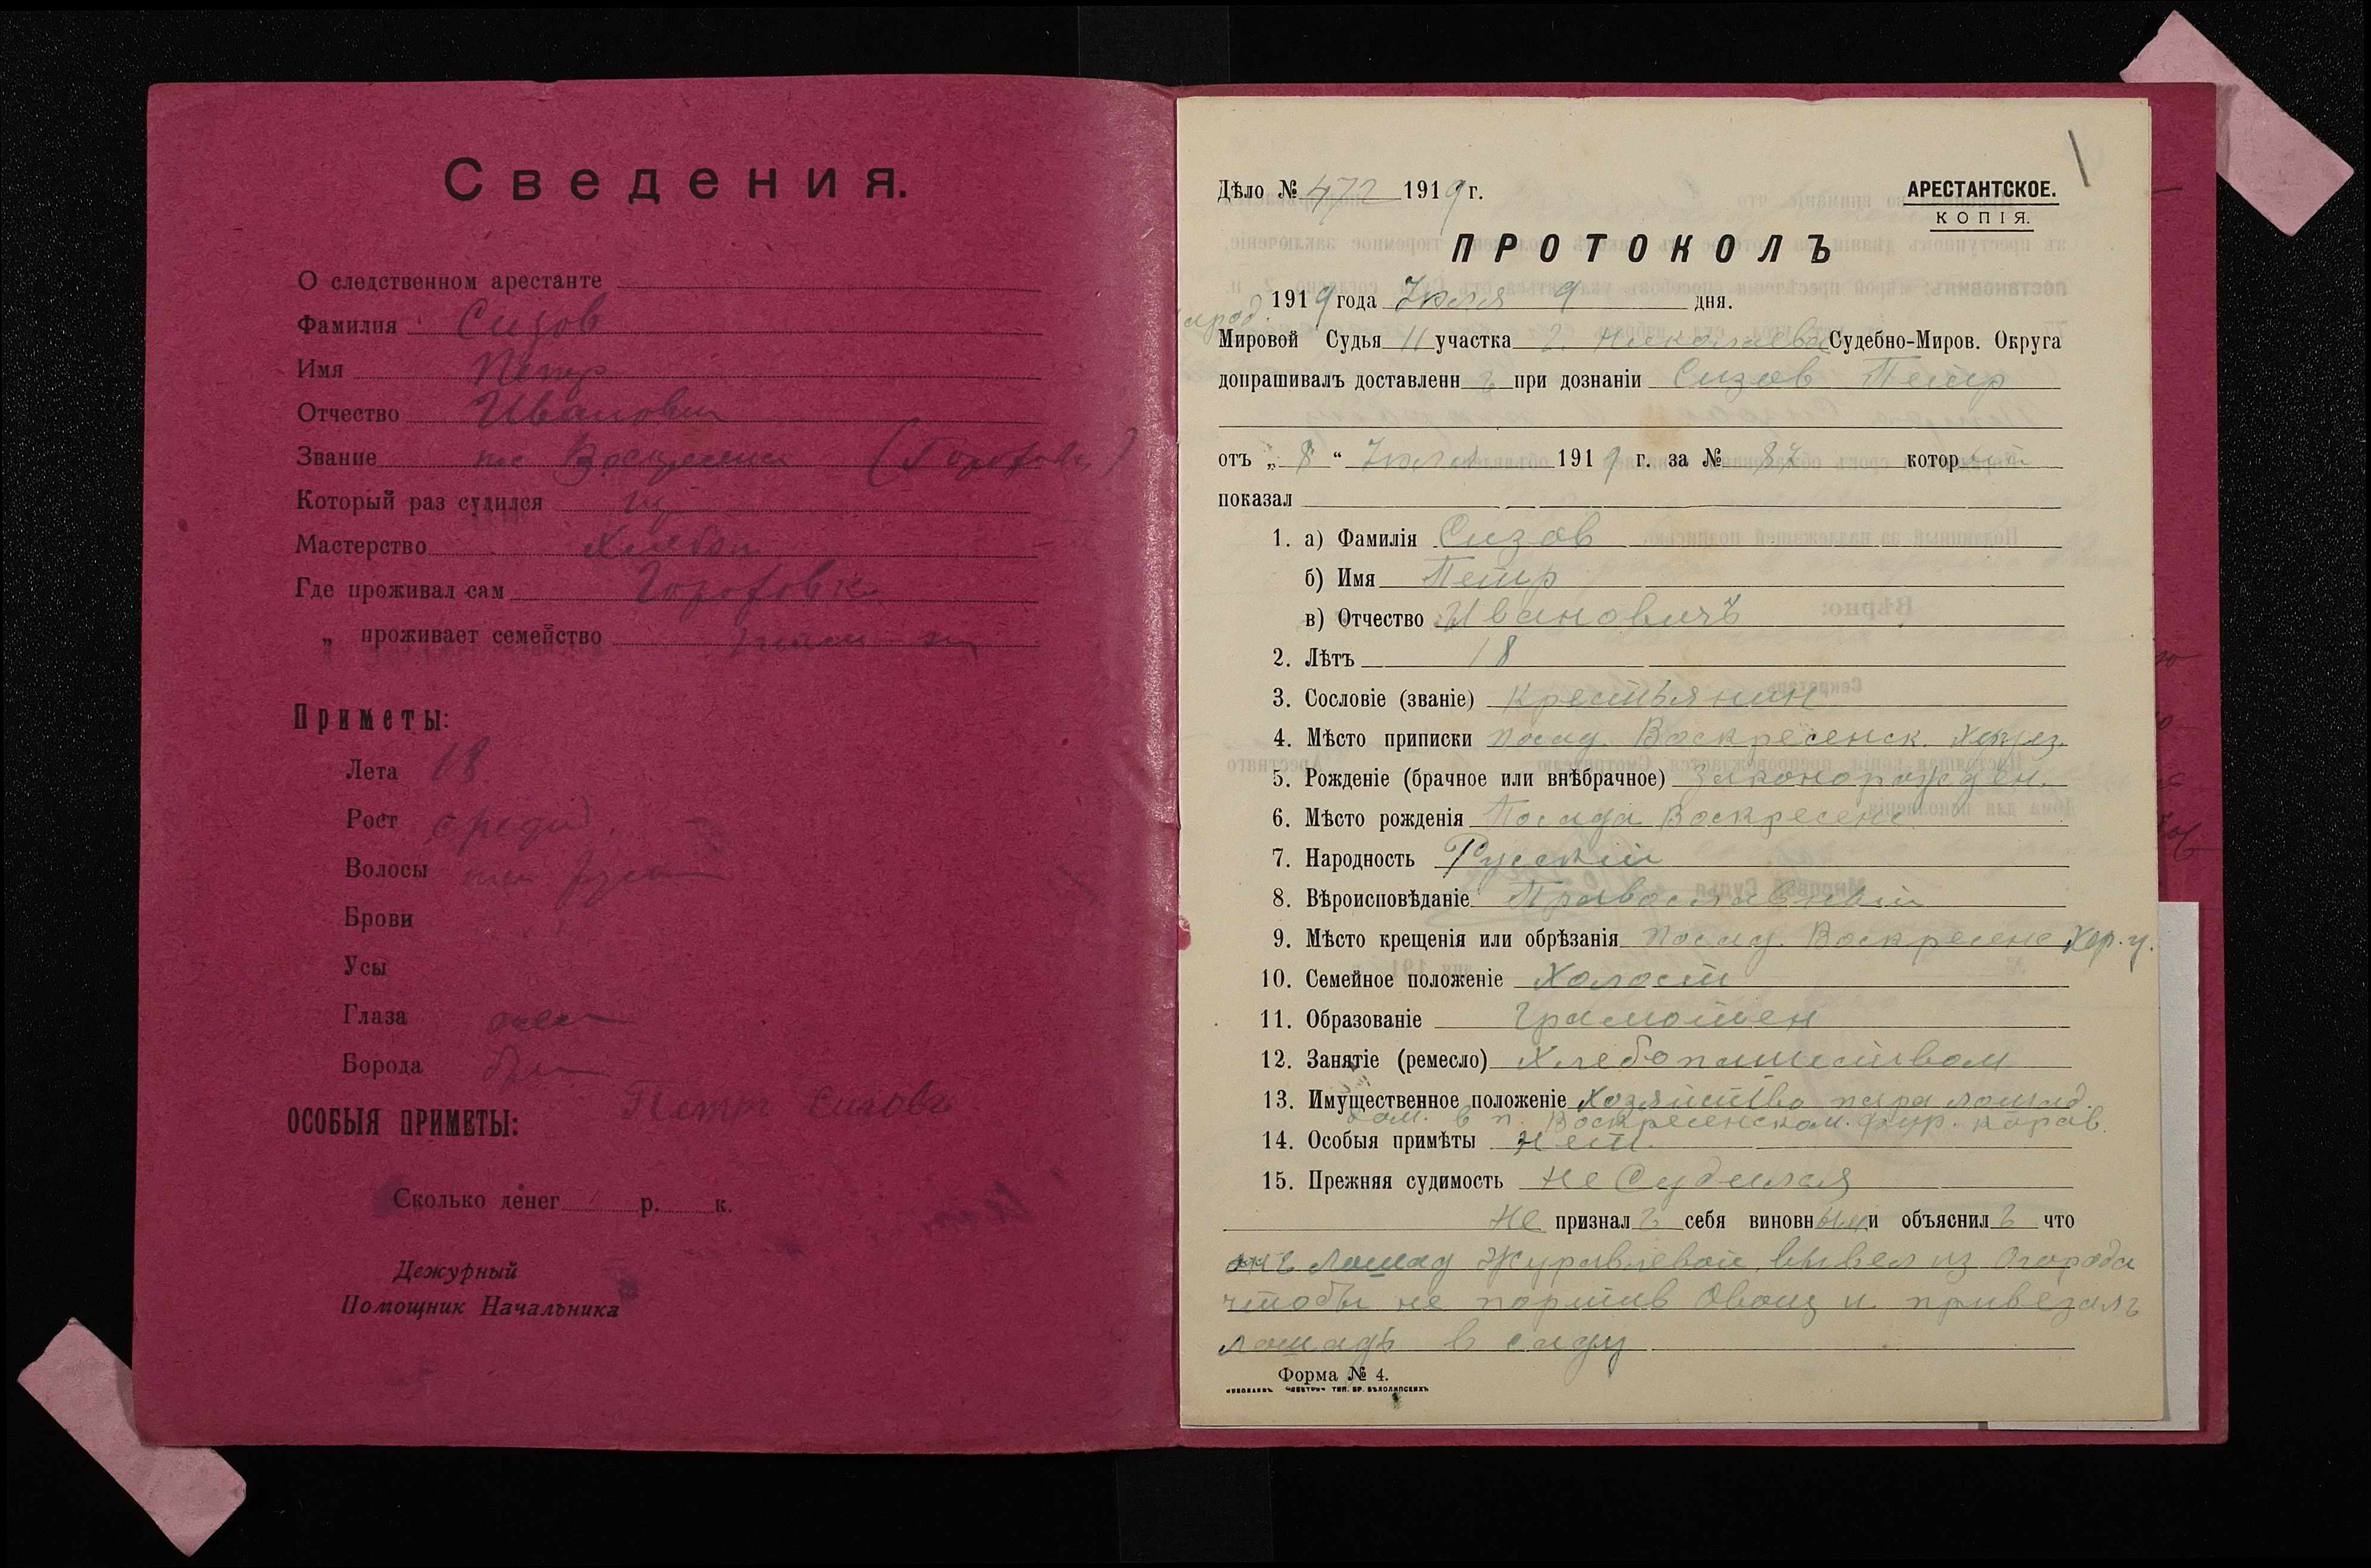 Сведения.
О следственном арестанте
Фамилия Сизов
Имя Петр
Отчество Иванович
Звание пос Воскресенск (Гороховка)
Который раз судился
Мастерство Хлебоп
Где проживал сам Гороховка
„ проживает семейство
Приметы:
Лета 18
Рост средн
Волосы
Брови
Усы
Глаза
Борода
ОСОБЫЯ ПРИМЕТЫ: Петръ Сизовъ
Сколько денег р. к.
Дежурный
Помощник Начальника
Дѣло № 472 1919 г.
АРЕСТАНТСКОЕ.
КОПІЯ.
ПРОТОКОЛЪ
1919 года Июля 9 дня.
Мировой Судья 11 участка г. Николаева Судебно-Миров. Округа
допрашивалъ доставленн ъ при дознаніи Сизов Петр
отъ „ 8 “ Июля 1919 г. за № 87 который
показал
1. а) Фамилія Сизов
б) Имя Петр
в) Отчество Ивановичъ
2. Лѣтъ 18
3. Сословіе (званіе) Крестьянин
4. Мѣсто приписки посад. Воскресенск. Хер уез.
5. Рожденіе (брачное или внѣбрачное) Законорожден.
6. Мѣсто рожденія Посада Воскресенс
7. Народность Русскій
8. Вѣроисповѣданіе Православный
9. Мѣсто крещенія или обрѣзанія посад. Воскресенс Хер. у.
10. Семейное положеніе Холост
11. Образованіе Грамотен
12. Занятіе (ремесло) Хлебопашеством
13. Имущественное положеніе Хозяйство пара лошад.
дом. в п. Воскресенском. фур. коров.
14. Особыя примѣты нет.
15. Прежняя судимость Не Судился
Не признал ъ себя виновным и объяснил ъ что
онъ лошад Журавлевой вывел из Огорода
чтобы не портив Овощ и привезалъ
лошадь в саду
Форма № 4.